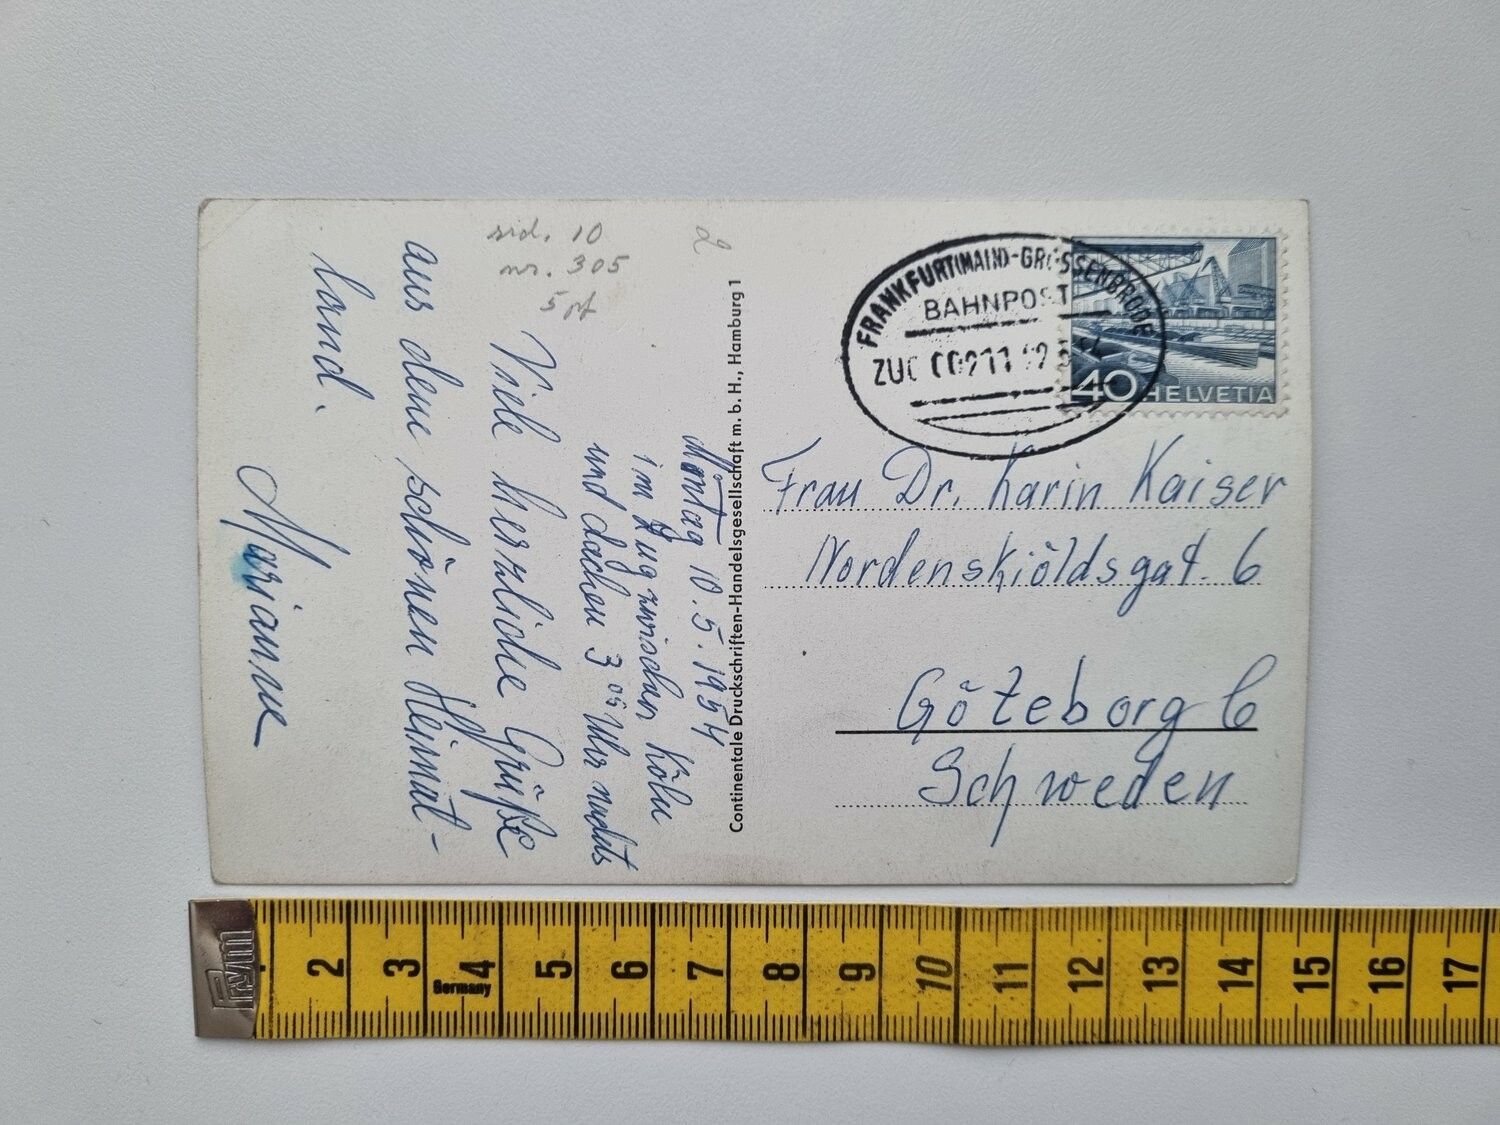 sid. 10
nr. 305
5 pf
2
Montag 10.5.1954
im Zug zwischen Köln
und Aachen 3 05 Uhr nachts
Viele herzliche Grüße
aus dem schönen Heimat-
land.
Marianne
Continentale Druckschriften-Handelsgesellschaft m. b. H., Hamburg 1
FRANKFURT(MAIN)-GROSSENBRODE
BAHNPOST
ZUG 00211
40 HELVETIA
Frau Dr. Karin Kaiser
Nordenskiöldsgat. 6
Göteborg C
Schweden
Prym
Germany
2 3 4 5 6 7 8 9 10 11 12 13 14 15 16 17